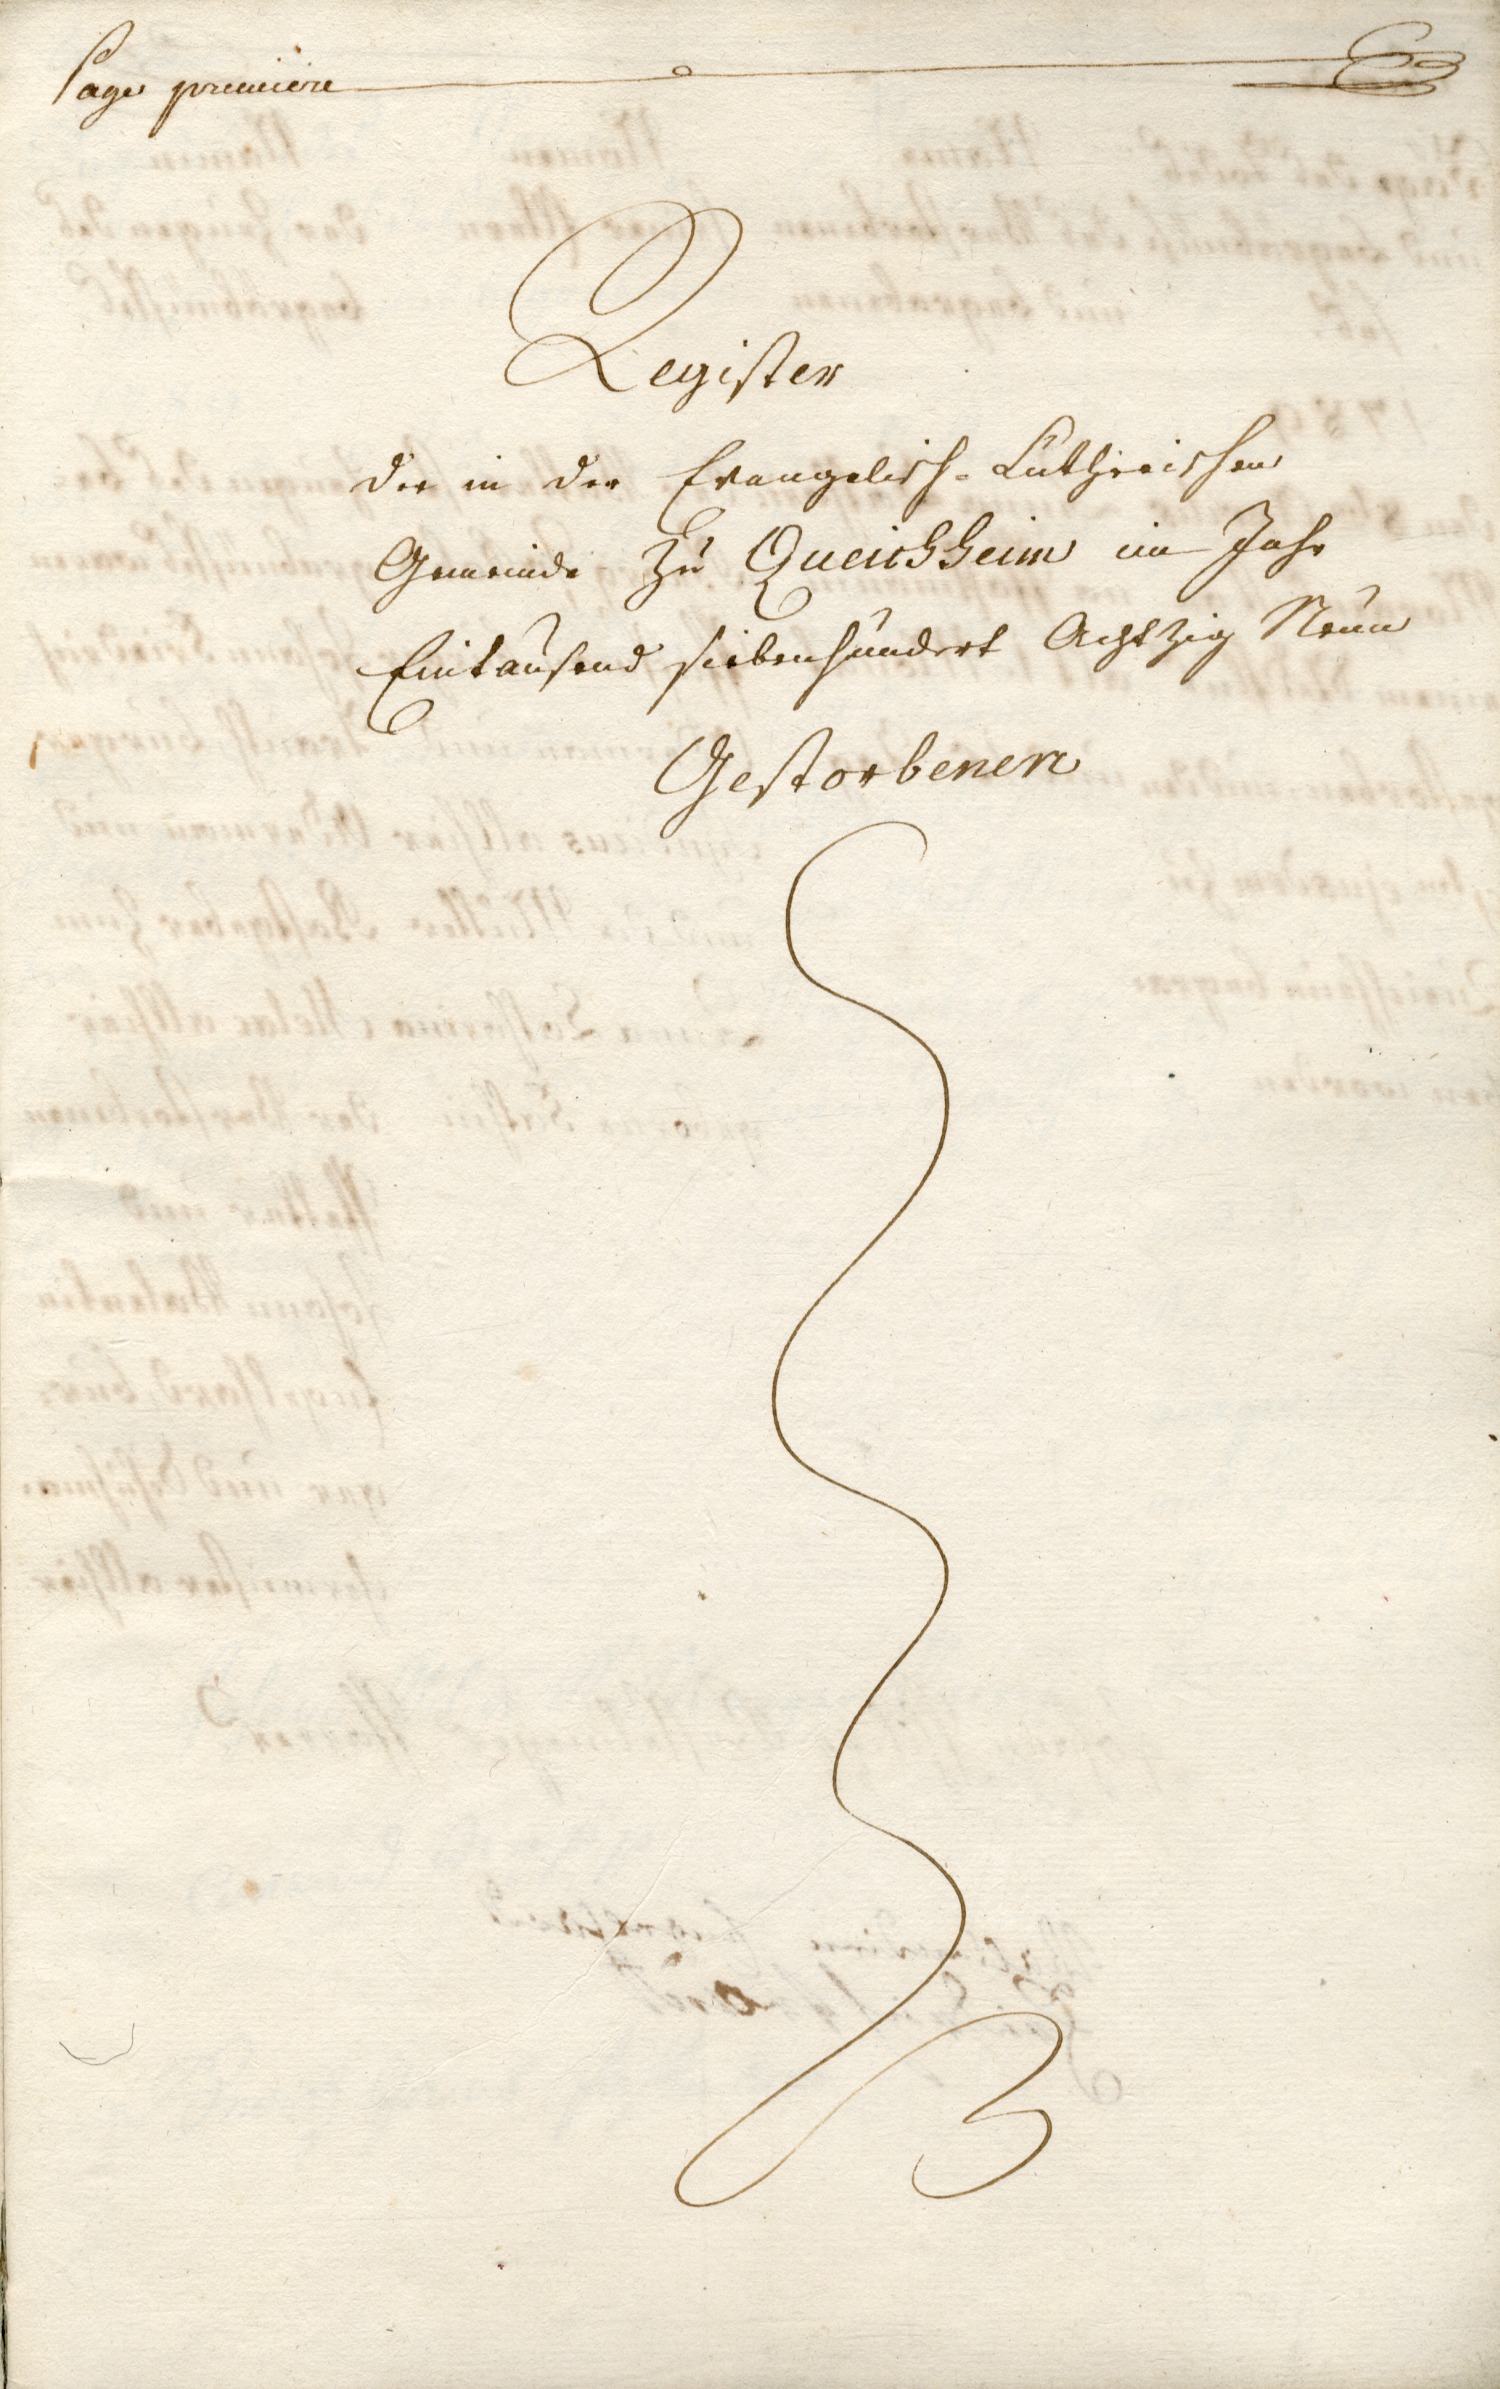 Page premiere
Register
der in der Evangelisch-Lutherischen
Gemeinde zu Queichheim im Jahr
Eintausend siebenhundert Achtzig Neun
Gestorbenen